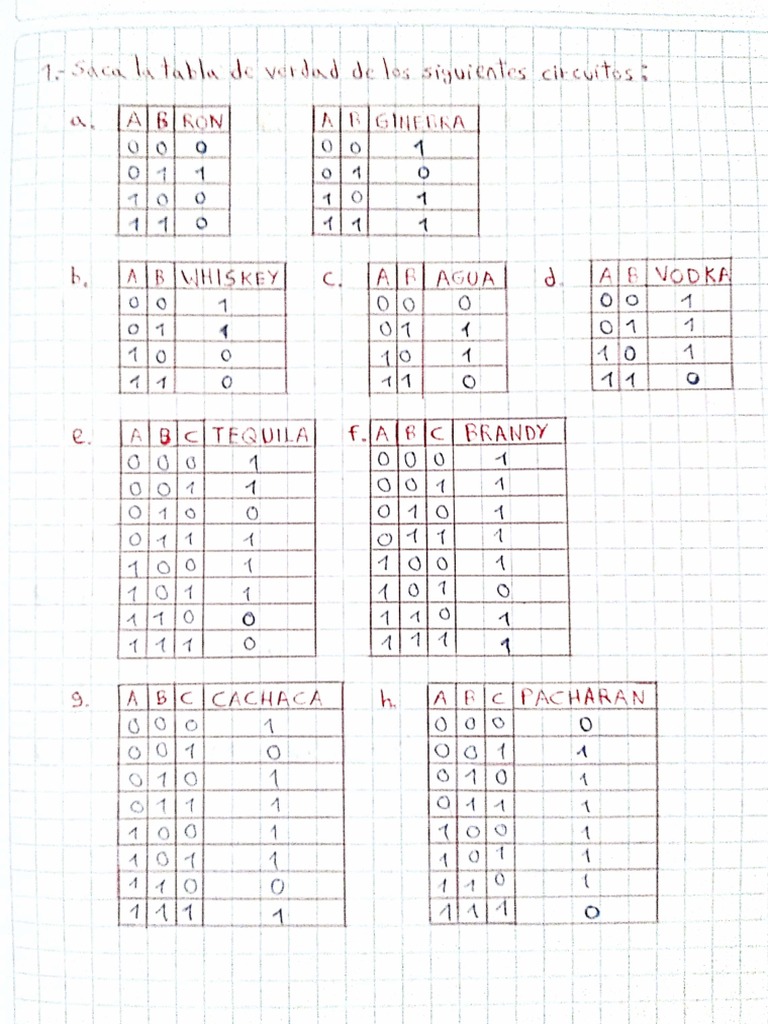 1.- Saca la tabla de verdad de los siguientes circuitos:
a. A B RON A B GINEBRA
0 0 0 0 0 1
0 1 1 0 1 0
1 0 0 1 0 1
1 1 0 1 1 1
b. A B WHISKEY c. A B AGUA d. A B VODKA
0 0 1 0 0 0 0 0 1
0 1 1 0 1 1 0 1 1
1 0 0 1 0 1 1 0 1
1 1 0 1 1 0 1 1 0
e. A B C TEQUILA f. A B C BRANDY
0 0 0 1 0 0 0 1
0 0 1 1 0 0 1 1
0 1 0 0 0 1 0 1
0 1 1 1 0 1 1 1
1 0 0 1 1 0 0 1
1 0 1 1 1 0 1 0
1 1 0 0 1 1 0 1
1 1 1 0 1 1 1 1
g. A B C CACHACA h. A B C PACHARAN
0 0 0 1 0 0 0 0
0 0 1 0 0 0 1 1
0 1 0 1 0 1 0 1
0 1 1 1 0 1 1 1
1 0 0 1 1 0 0 1
1 0 1 1 1 0 1 1
1 1 0 0 1 1 0 1
1 1 1 1 1 1 1 0